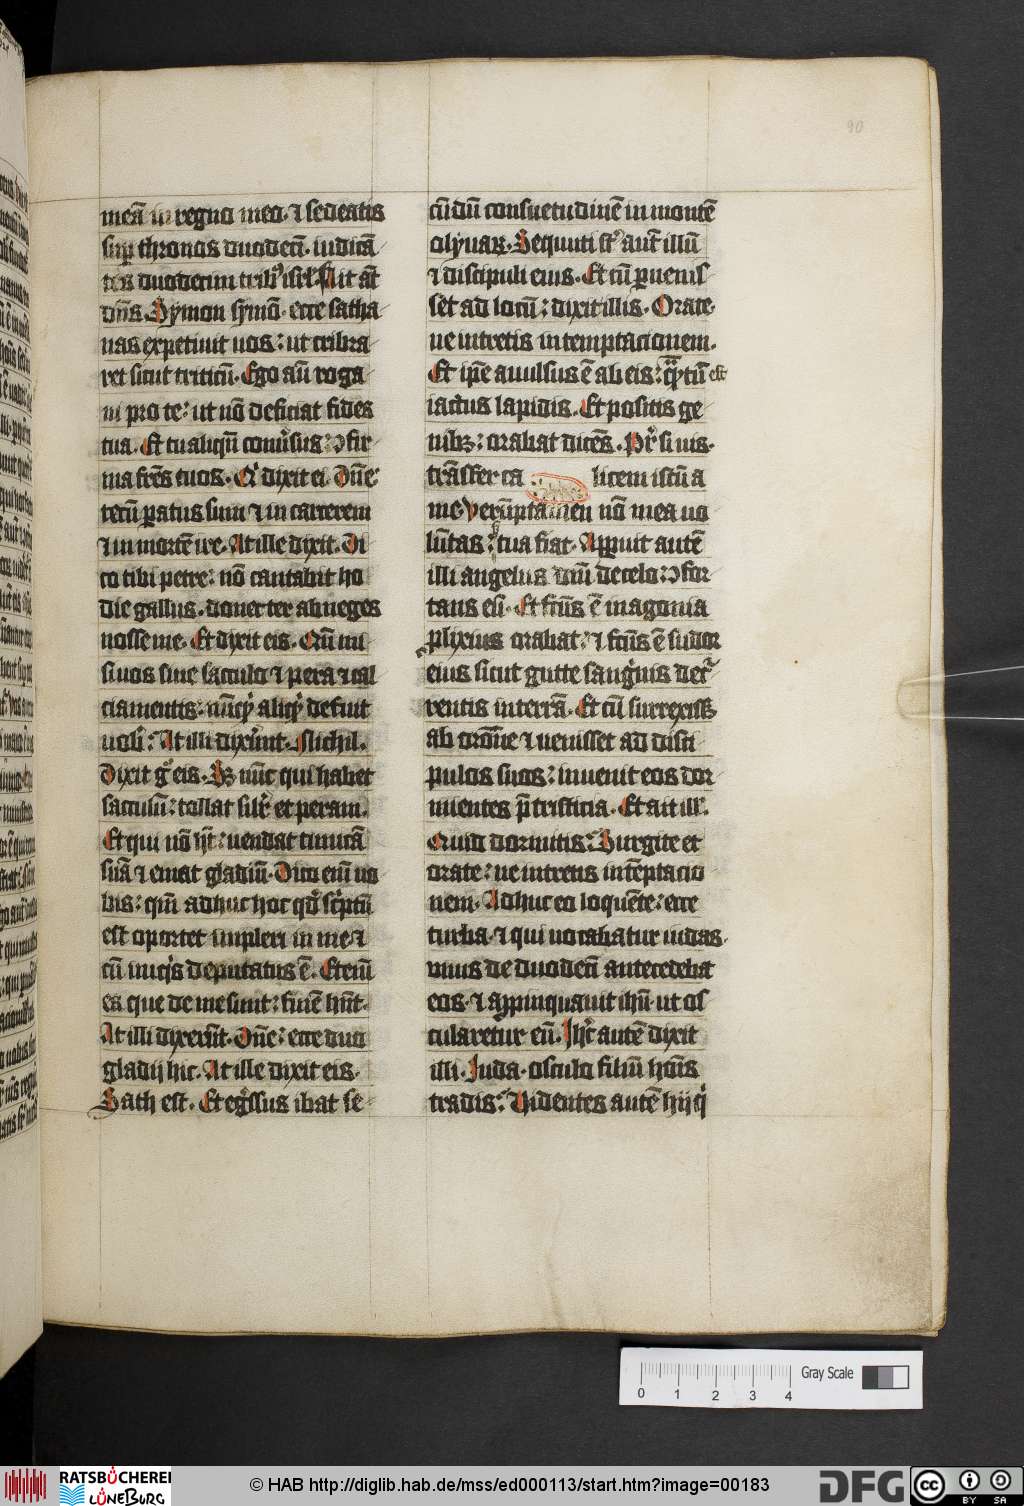 90
meā in regno meo · ⁊ sedeatis
sup̲ thronos duodecī · iudicā
tes duodecim trib⁹ isrl̄ · Ait āt
dn̄s Symon symō · ecce satha
nas expetiuit uos : ut cribra
ret sicut triticū · Ego aūt roga
ui pro te : ut nō deficiat fides
tua · Et tu aliqn̄ conu̾sus : ꝯfir
ma fr̄es tuos · Qͥ dixit ei · Dn̄e
tecū paratus sum ⁊ in carcerem
⁊ in mortē ire · At ille dixit · Di
co tibi petre : nō cantabit ho
die gallus · donec ter abneges
nosse me · Et dixit eis · Qn̄ mi
si uos sine sacculo ⁊ pera ⁊ cal
ciamentis : nūcꝙ aliqͥ defuit
uob̄ : At illi dixer̄t · Nichil ·
Dixit g° eis · Sꝫ nūc qui habet
sacculū : tollat silr̄ et peram ·
Et qui nō hꝫ : uendat tunicā
suā ⁊ emat gladiū · Dico eni̅ uo
bis : qm̄ adhuc hoc qd̄ sc̾ptū
est oportet impleri in me ⁊
cū iniqͥs deputatus ē · Eteni̅
ea que de me sunt : finē hn̄t ·
At illi dixer̄t · Dn̄e : ecce duo
gladii hic · At ille dixit eis ·
Sath est · Et eg̾ssus ibat se
cūdū consuetudinē in montē
olyuaꝝ · Sequuti st̄ aut̄ illū
⁊ discipuli eius · Et cū p̲uenis
set ad locū : dixit illis · Orate ·
ne intretis in temptacionem ·
Et ip̄e auulsus ē ab eis : qᷓtū est
iactus lapidis · Et positis ge
nibꝫ : orabat dicēs · Pr̄ si uis ·
trāsfer ca licem istū a
me Verūptamen nō mea uo
lūtas : tua fiat · Apparuit autē
illi angelus dn̄i de celo : ꝯfor
tans eū · Et fc̄us ē in agonia
ꝓlixius orabat : ⁊ fc̄us ē sudor
eius sicut gutte sang̾nis decr̾
rentis in terrā · Et cū surrexisꝫ
ab orōne ⁊ uenisset ad disci
pulos suos : inuenit eos dor
mientes p̄ tristicia · Et ait ill̾ ·
Quid dormitis : Surgite et
orate : ne intretis in tēptacio
nem · Adhuc eo loquēte : ecce
turba · ⁊ qui uocabatur iudas ·
unus de duodecī antecedebat
eos · ⁊ appinquauit ihū · ut os
cularetur eū · Ihc̄ autē dixit
illi · Juda · osculo filiū hoīs
tradis : Uidentes autē hii qͥ
0 1 2 3 4
Gray Scale
RATSBÜCHEREI
LÜNEBURG
© HAB http://diglib.hab.de/mss/ed000113/start.htm?image=00183
DFG
cc BY SA